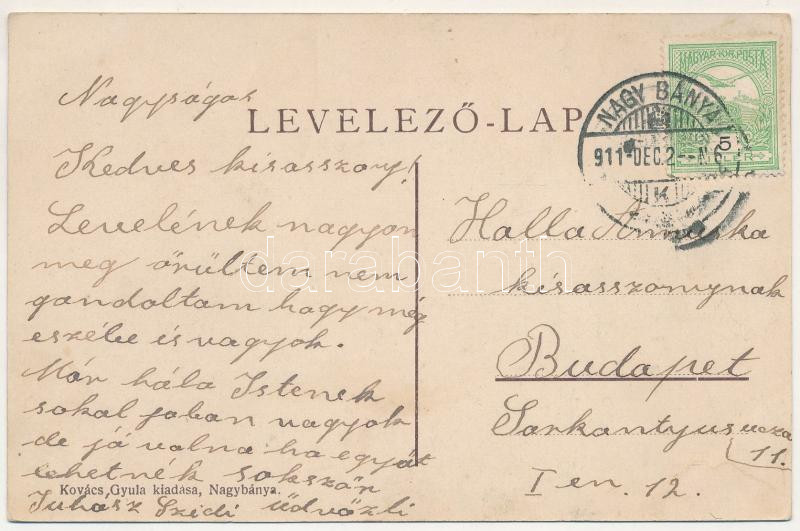 Nagyságos
LEVELEZŐ-LAP
Kedves kisasszony!
Levelének nagyon
meg örültem nem
gondoltam hogy még
eszébe is vagyok.
Már hála Istenek
sokal joban vagyok
de já volna ha együt
lehetnék sokszór
Juhász Szidi üdvözli
Kovács Gyula kiadása, Nagybánya.
MAGYAR·KIR·POSTA
5
NAGY BÁNYA
911-DEC.2
K
Halla Annuska
kisasszonynak
Budapet
Sarkantyus ucza
11.
I em. 12.
darabanth